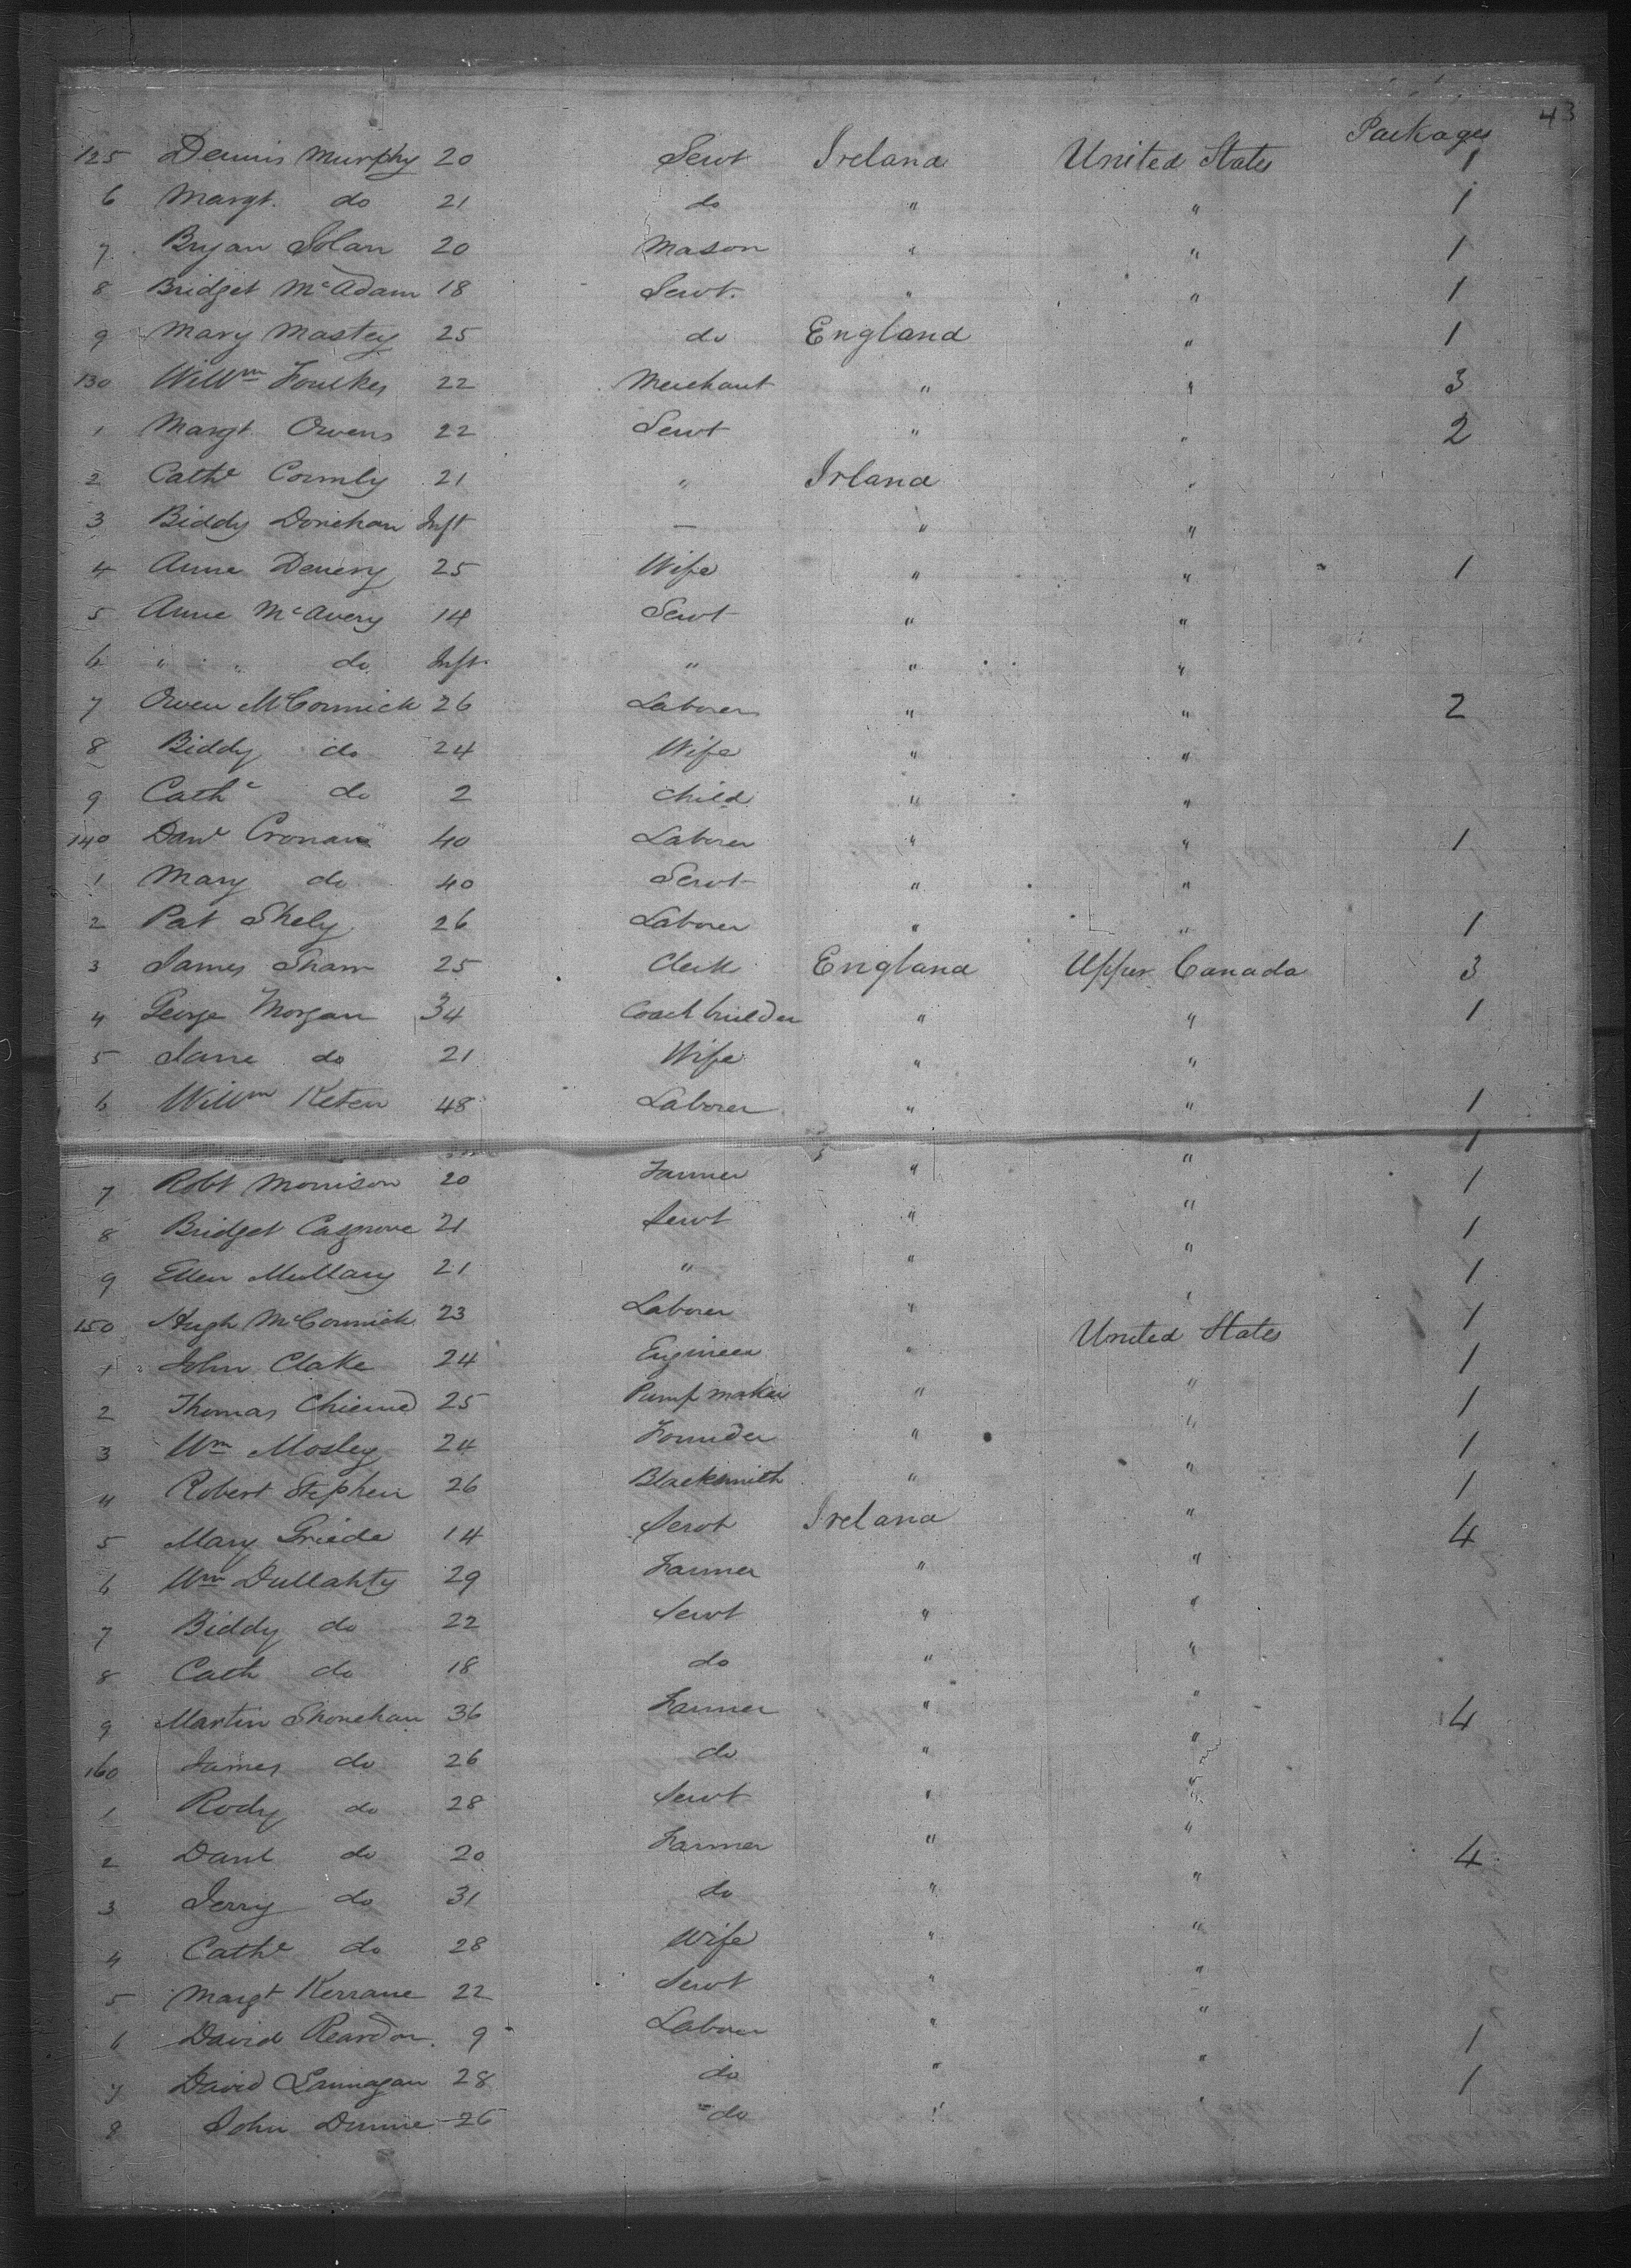 43
Packages
125 Dennis Murphy 20 Servt Ireland United States 1
6 Margt. do 21 do " " 1
7 Bryan Solan 20 Mason " " 1
8 Bridget McAdam 18 Servt. " " 1
9 Mary Mastey 25 do England " 1
130 Willm Foulkes 22 Merchant " " 3
1 Margt Owens 22 Servt " " 2
2 Cathe Cormly 21 " Irland "
3 Biddy Donehan Inft — " "
4 Anne Denery 25 Wife " " 1
5 Anne McAvery 14 Servt " "
6 " " do Inft. " " "
7 Owen McCormick 26 Laborer " " 2
8 Biddy do 24 Wife " "
9 Cathe do 2 Child " "
140 Danl Cronan 40 Laborer " " 1
1 Mary do 40 Servt " "
2 Pat Shely 26 Laborer " " 1
3 James Sham 25 Clerk England Upper Canada 3
4 George Morgan 34 Coach builder " " 1
5 Jane do 21 Wife " "
6 Willm Keten 48 Laborer " " 1
1
7 Robt Morrison 20 Farmer " " 1
8 Bridget Casgrove 21 Servt " " 1
9 Ellen Mullary 21 " " " 1
150 Hugh McCormick 23 Laborer " " 1
1 John Clake 24 Engineer " United States 1
2 Thomas 25 Pump maker " " 1
3 Wm Mosley 24 Founder " " 1
4 Robert Stephen 26 Blacksmith " " 1
5 Mary Griede 14 Servt Ireland " 4
6 Wm Dullahty 29 Farmer " "
7 Biddy do 22 Servt " "
8 Cath do 18 do " "
9 Martin Shonehan 36 Farmer " " 4
160 James do 26 do " "
1 Rody do 28 Servt " "
2 Danl do 20 Farmer " " 4
3 Jerry do 31 do " "
4 Cathe do 28 Wife " "
5 Margt Kerrane 22 Servt " "
6 David Reardon 9 Laborer " " 1
7 David Lannagan 28 do " " 1
8 John Dunne 26 do " "